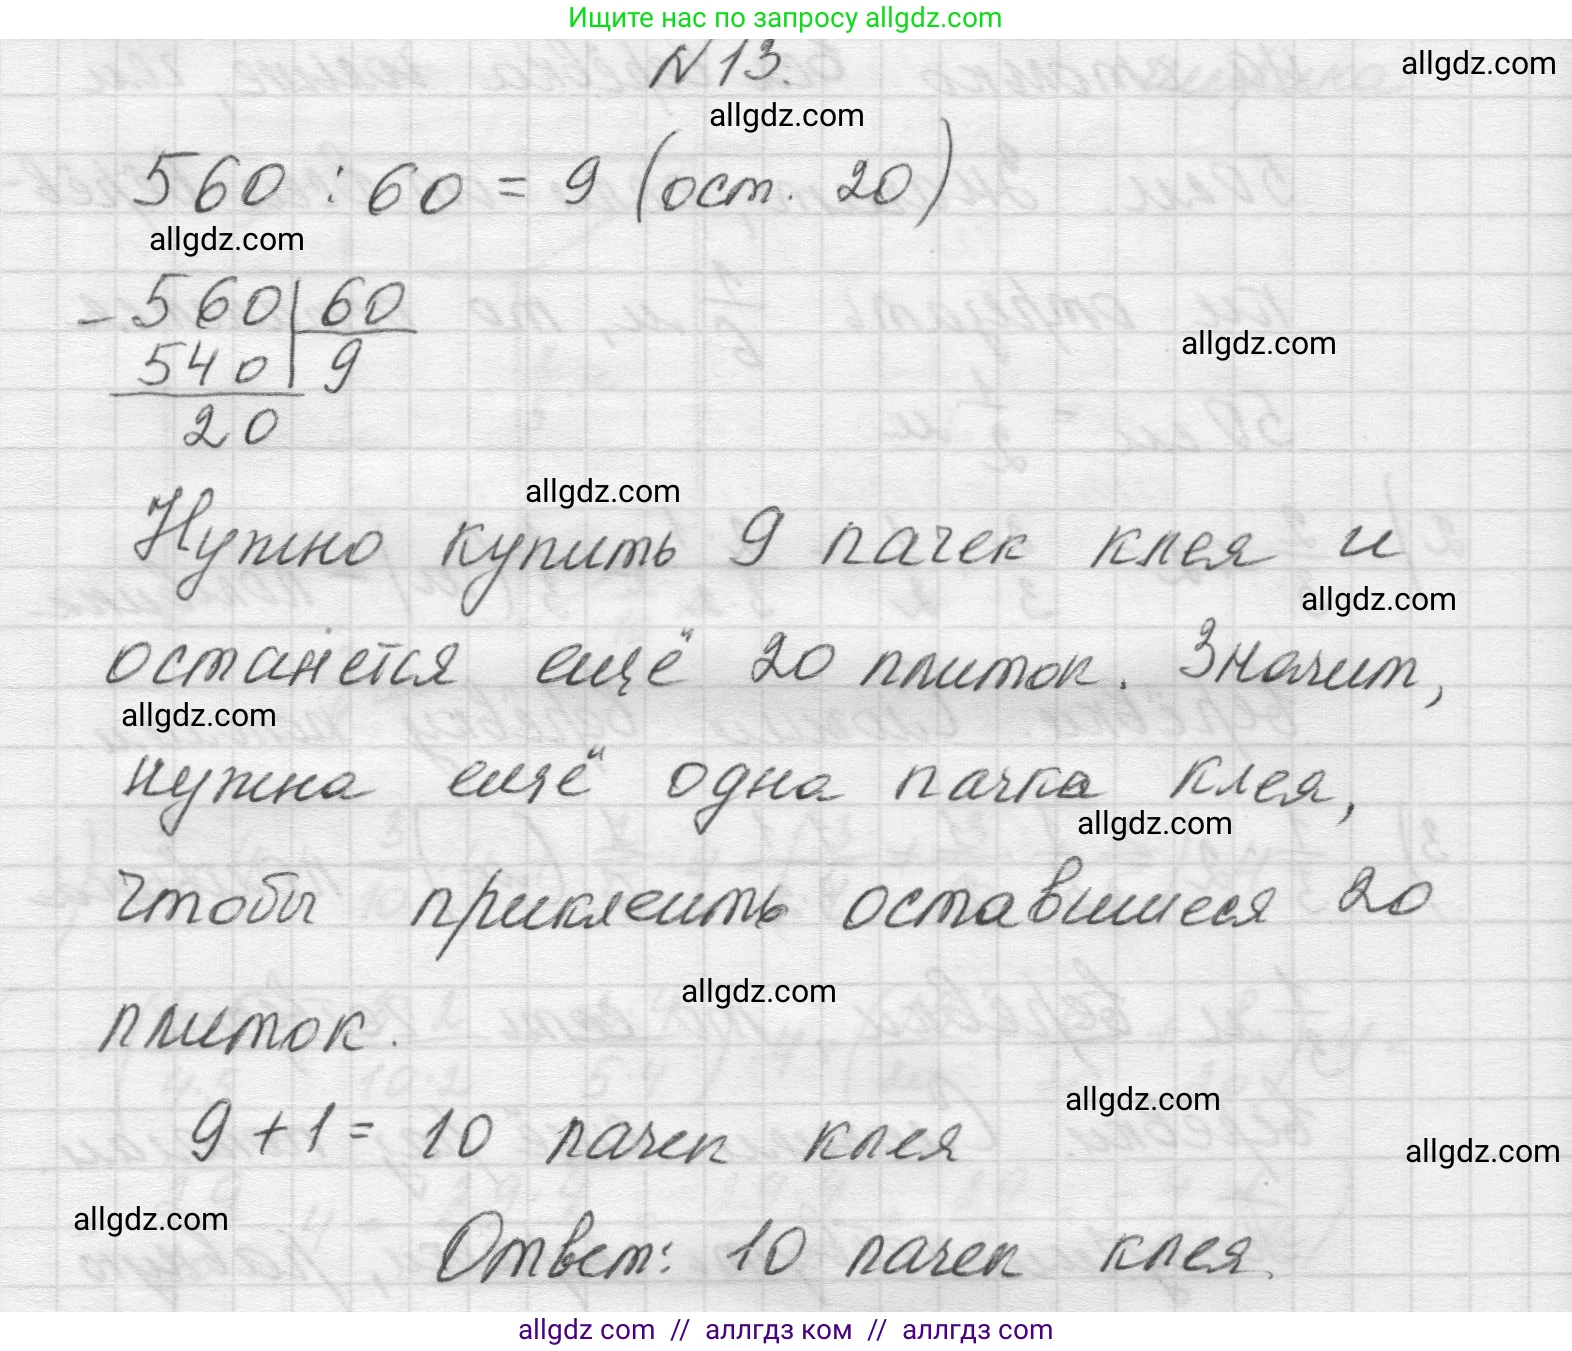 Ищите нас по запросу allgdz.com
N 13.
allgdz.com
allgdz.com
560 : 60 = 9 (ост. 20)
allgdz.com
- 560 | 60
540 | 9
allgdz.com
20
allgdz.com
Нужно купить 9 пачек клея и
allgdz.com
останется ещё 20 плиток. Значит,
allgdz.com
нужна ещё одна пачка клея,
allgdz.com
чтобы приклеить оставшиеся 20
allgdz.com
плиток.
allgdz.com
9 + 1 = 10 пачек клея
allgdz.com
allgdz.com
Ответ: 10 пачек клея.
allgdz com // аллгдз ком // аллгдз com